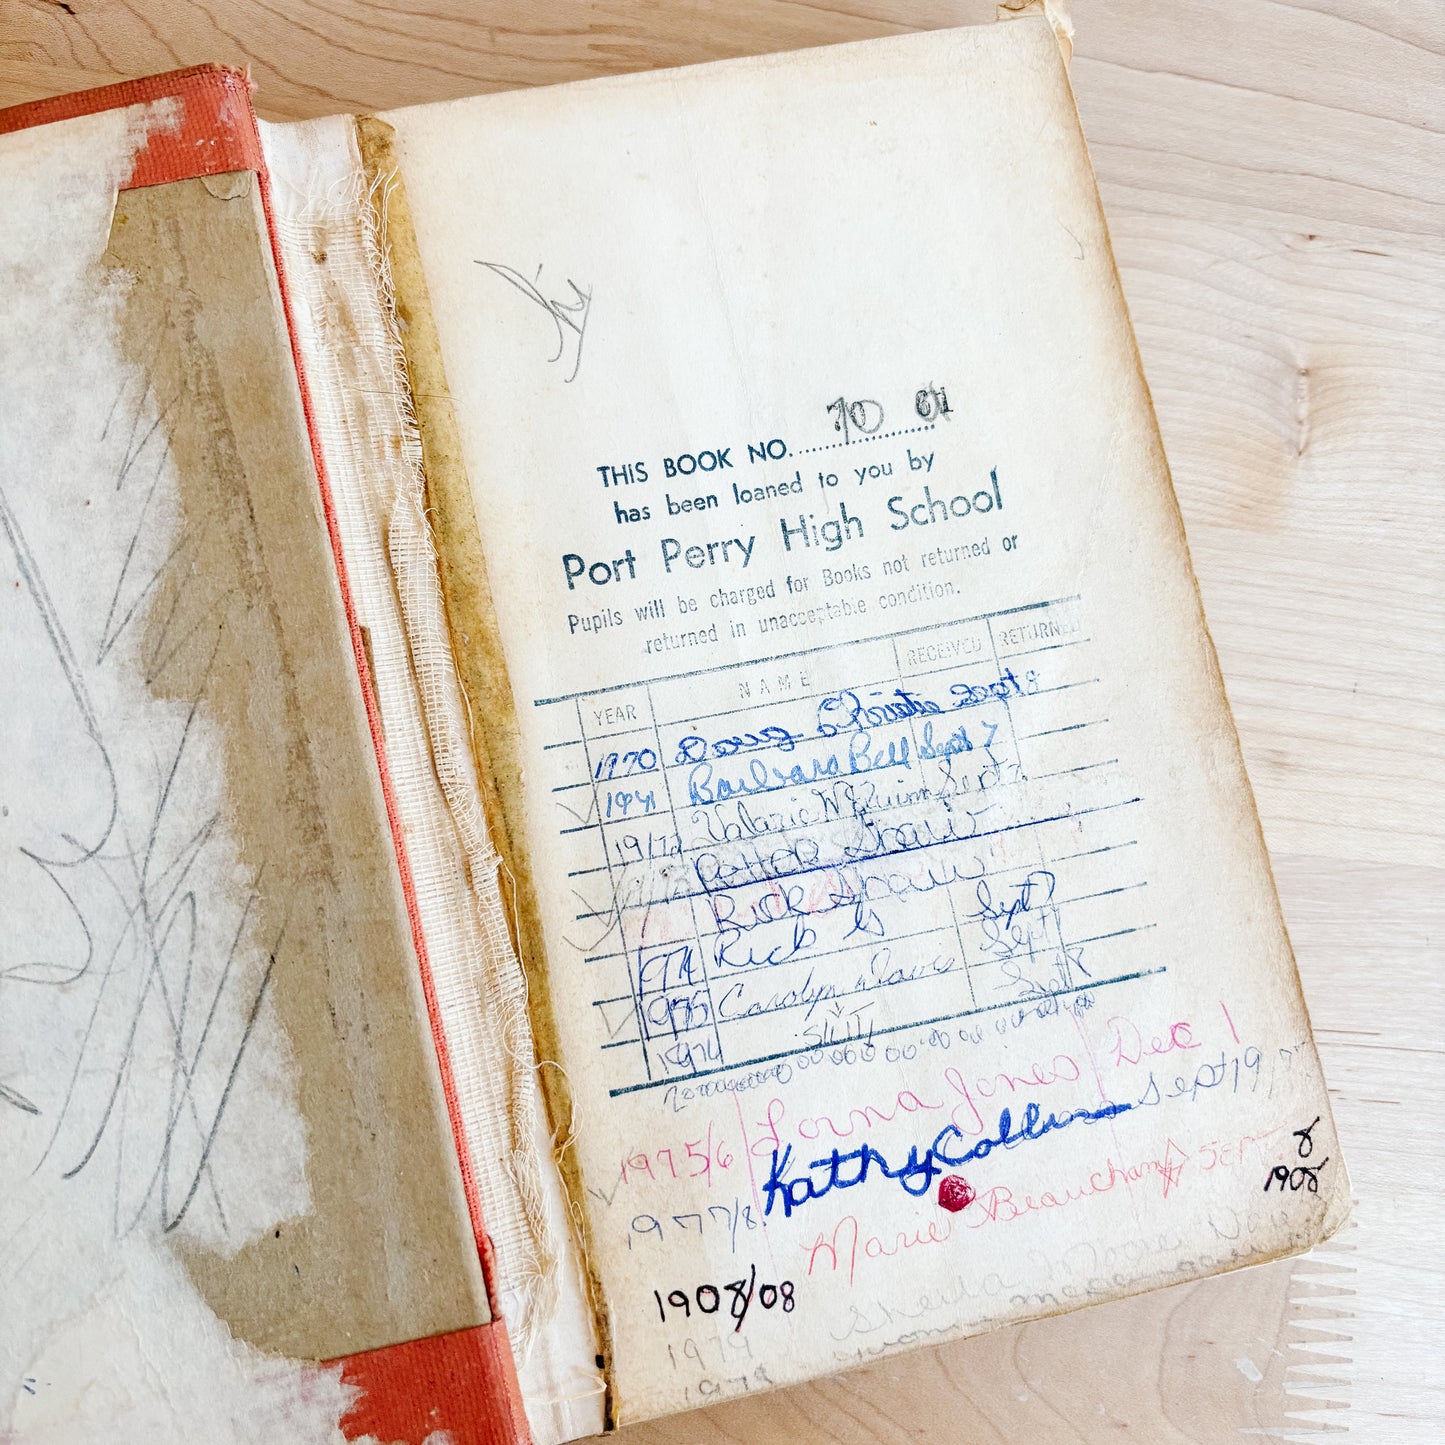 THIS BOOK NO. 70 61
has been loaned to you by
Port Perry High School
Pupils will be charged for Books not returned or
returned in unacceptable condition.
YEAR NAME RECEIVED RETURNED
1970 Doug Sept 8
1971 Barbara Bell Sept 7
19/72 Valarie Sept 7
Rick Shaw
Rick Shaw
1974 Rick S Sept 7
1975 Carolyn Davis Sept
1974 Sept 8
1975/6 Lorna Jones Dec 1
1977/8 Kathy Collins Sept 19/77
Marie Beauchamp SEPT. 8
1908/08 1908
1979 Sheila
1979